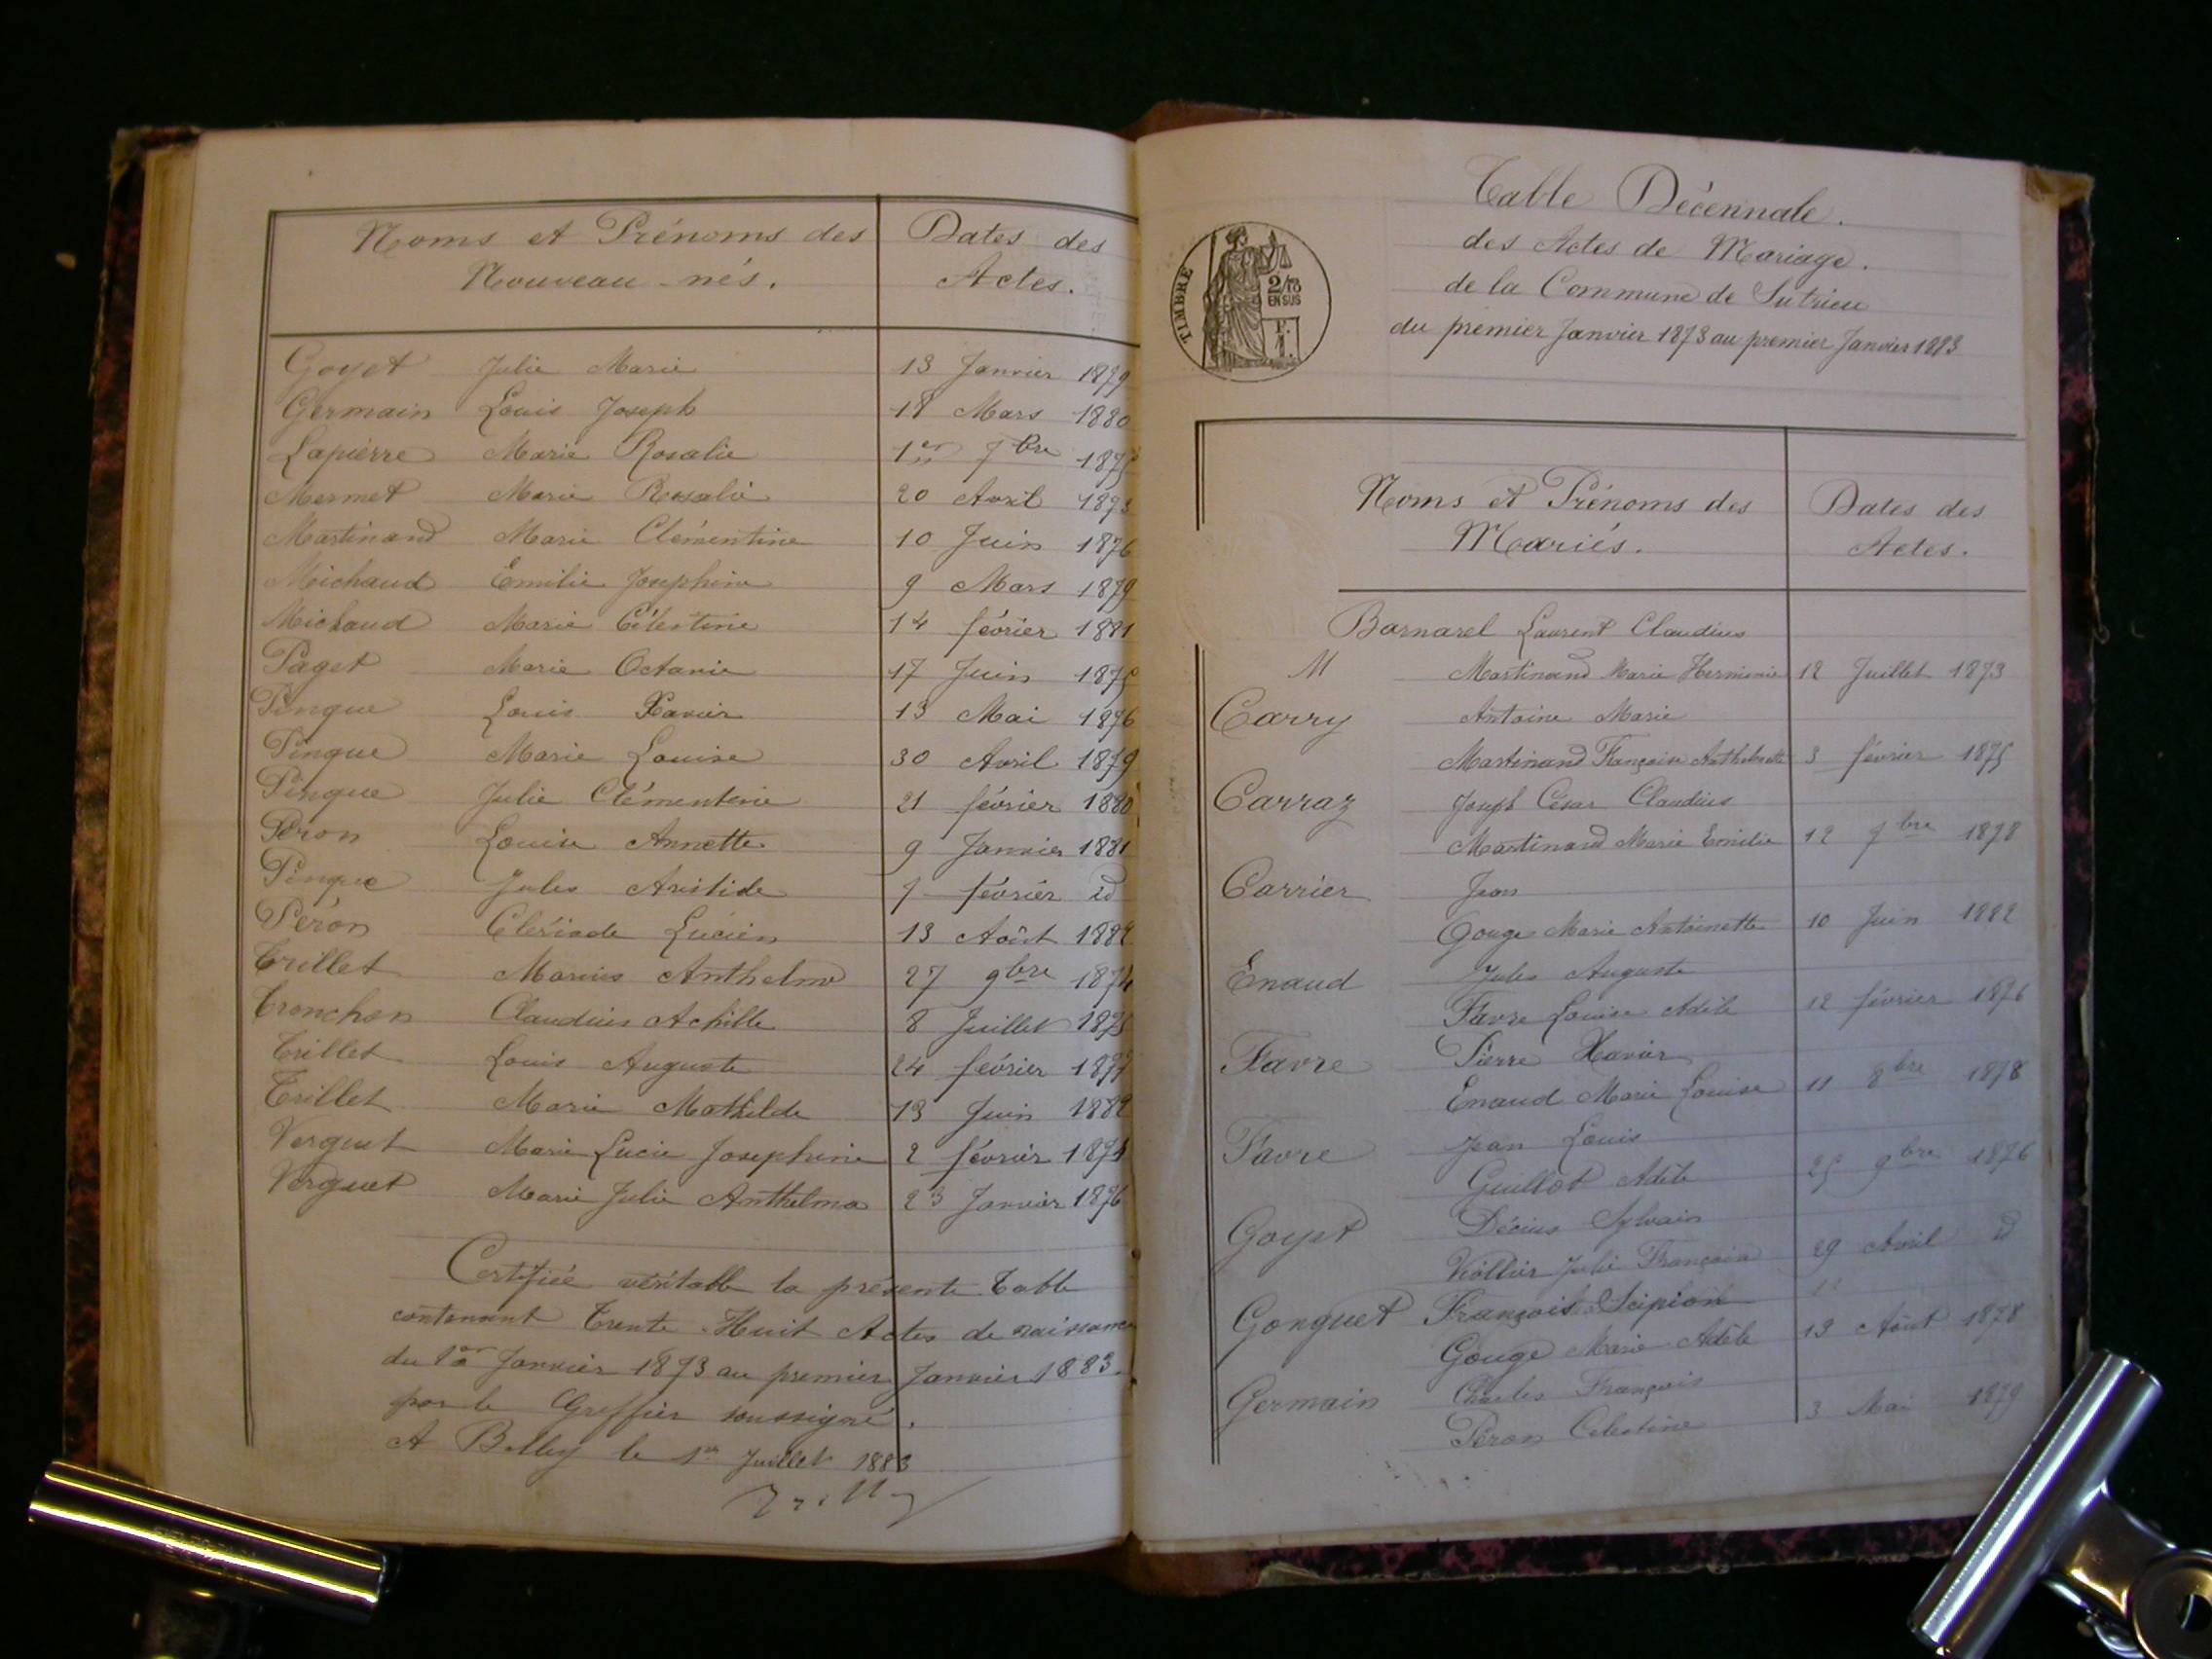 Noms et Prénoms des
Nouveau-nés.
Dates des
Actes.
Goyet Julie Marie 13 Janvier 1879
Germain Louis Joseph 18 Mars 1880
Lapierre Marie Rosalie 1er 7bre
Mermet Marie Rosalie 20 Avril 1873
Martinand Marie Clémentine 10 Juin 1876
Michaud Emilie Josephine 9 Mars 1879
Michaud Marie Célestine 14 février 1881
Paget Marie Octavie 17 Juin 1875
Pingue Louis Xavier 13 Mai 1876
Pingue Marie Louise 30 Avril 1879
Pingue Julie Clémentine 21 février 1880
Péron Louise Annette 9 Janvier 1881
Pingue Jules Aristide 7 février id
Péron Clériade Lucien 13 Août 1882
Trillet Marius Anthelme 27 9bre 1874
Tronchon Claudius Achille 8 Juillet 1875
Trillet Louis Auguste 24 février 1877
Trillet Marie Mathilde 13 Juin 1882
Verguet Marie Lucie Josephine 2 février 1874
Verguet Marie Julie Anthelma 23 Janvier 1876
Certifiée véritable la présente Table
contenant Trente-Huit Actes de naissance
du 1er Janvier 1873 au premier Janvier 1883.
par le Greffier soussigné.
A Belley le 1er Juillet 1883
Table Décennale.
des Actes de Mariage.
de la Commune de Sutrieu
du premier Janvier 1873 au premier Janvier 1883
TIMBRE
2/10
EN SUS
Noms et Prénoms des
Mariés.
Dates des
Actes.
Bornarel Laurent Claudius
M Martinand Marie Herminie 12 Juillet 1873
Carry Antoine Marie
Martinand Françoise Anthelmette 3 février 1875
Carraz Joseph César Claudius
Martinand Marie Emilie 12 7bre 1878
Carrier Jean
Gouge Marie Antoinette 10 Juin 1882
Enaud Jules Auguste
Favre Louise Adèle 12 février 1876
Favre Pierre Xavier
Enaud Marie Louise 11 8bre 1878
Favre Jean Louis
Guillot Adèle 25 9bre 1876
Goyet Décius Sylvain
Julie 29 Avril id
Gonguet François Scipion
Gouge Marie Adèle 13 Août 1878
Germain Charles François
Péron Célestine 3 Mai 1879